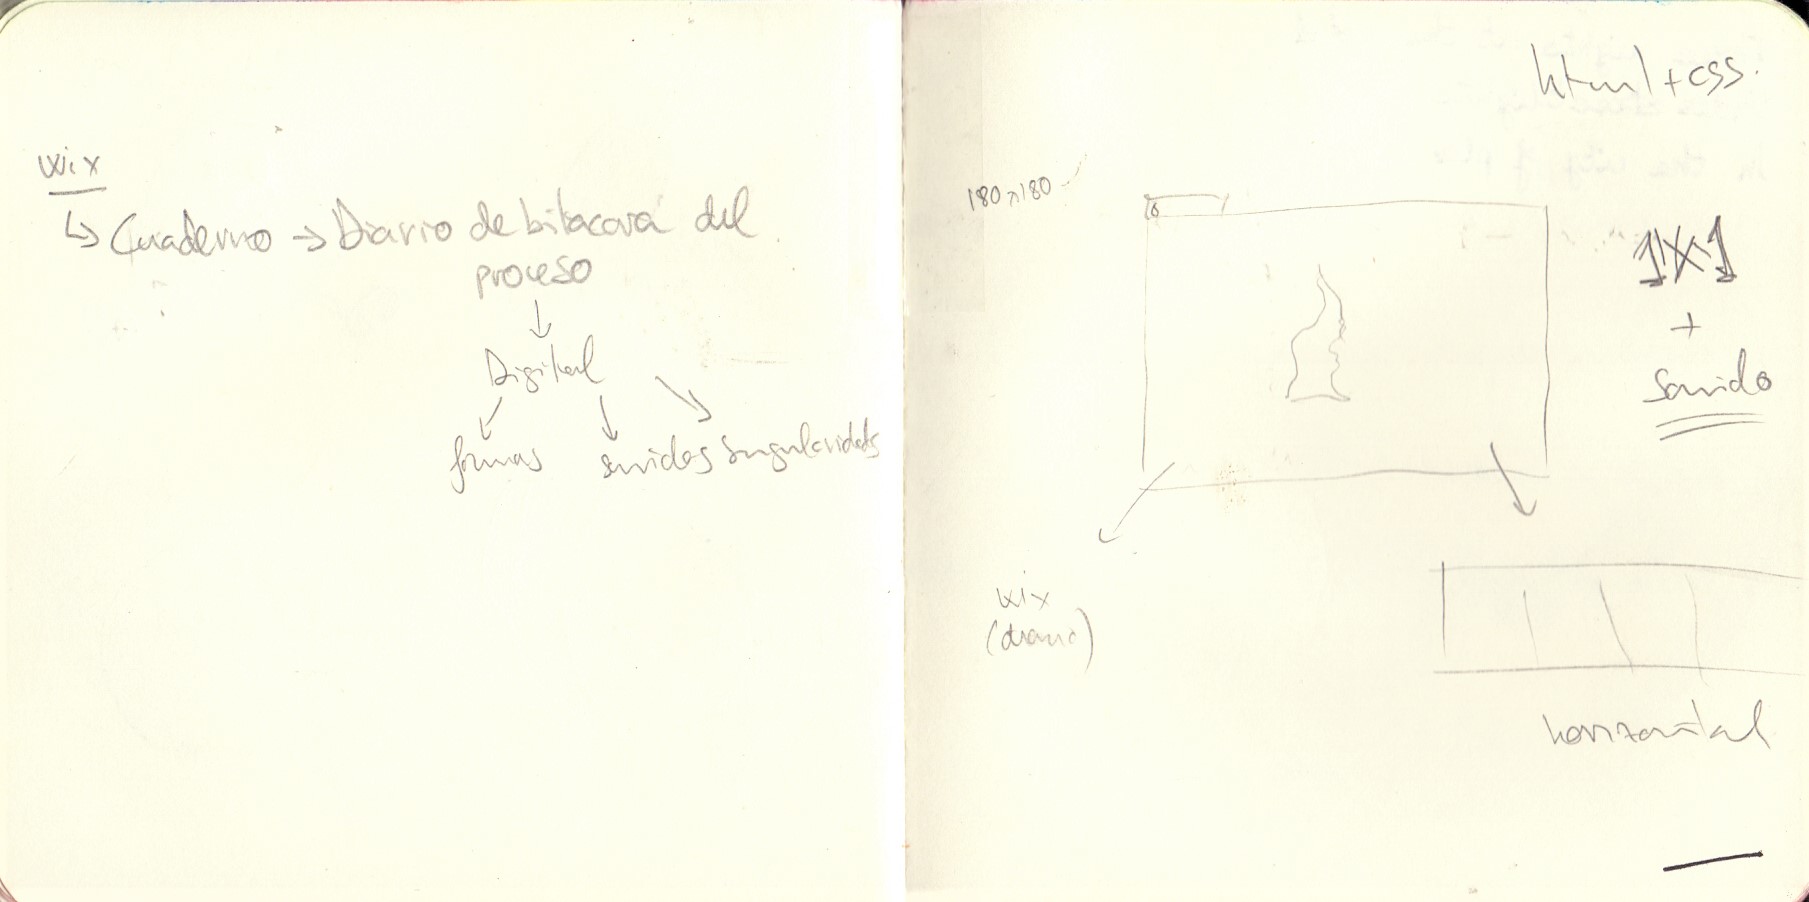 wix
↳ Cuaderno → Diario de bitacora del
proceso
Digital
formas sonidos singularidades
html+css.
180x180
1x1
+
sonido
wix
(diario)
horizontal